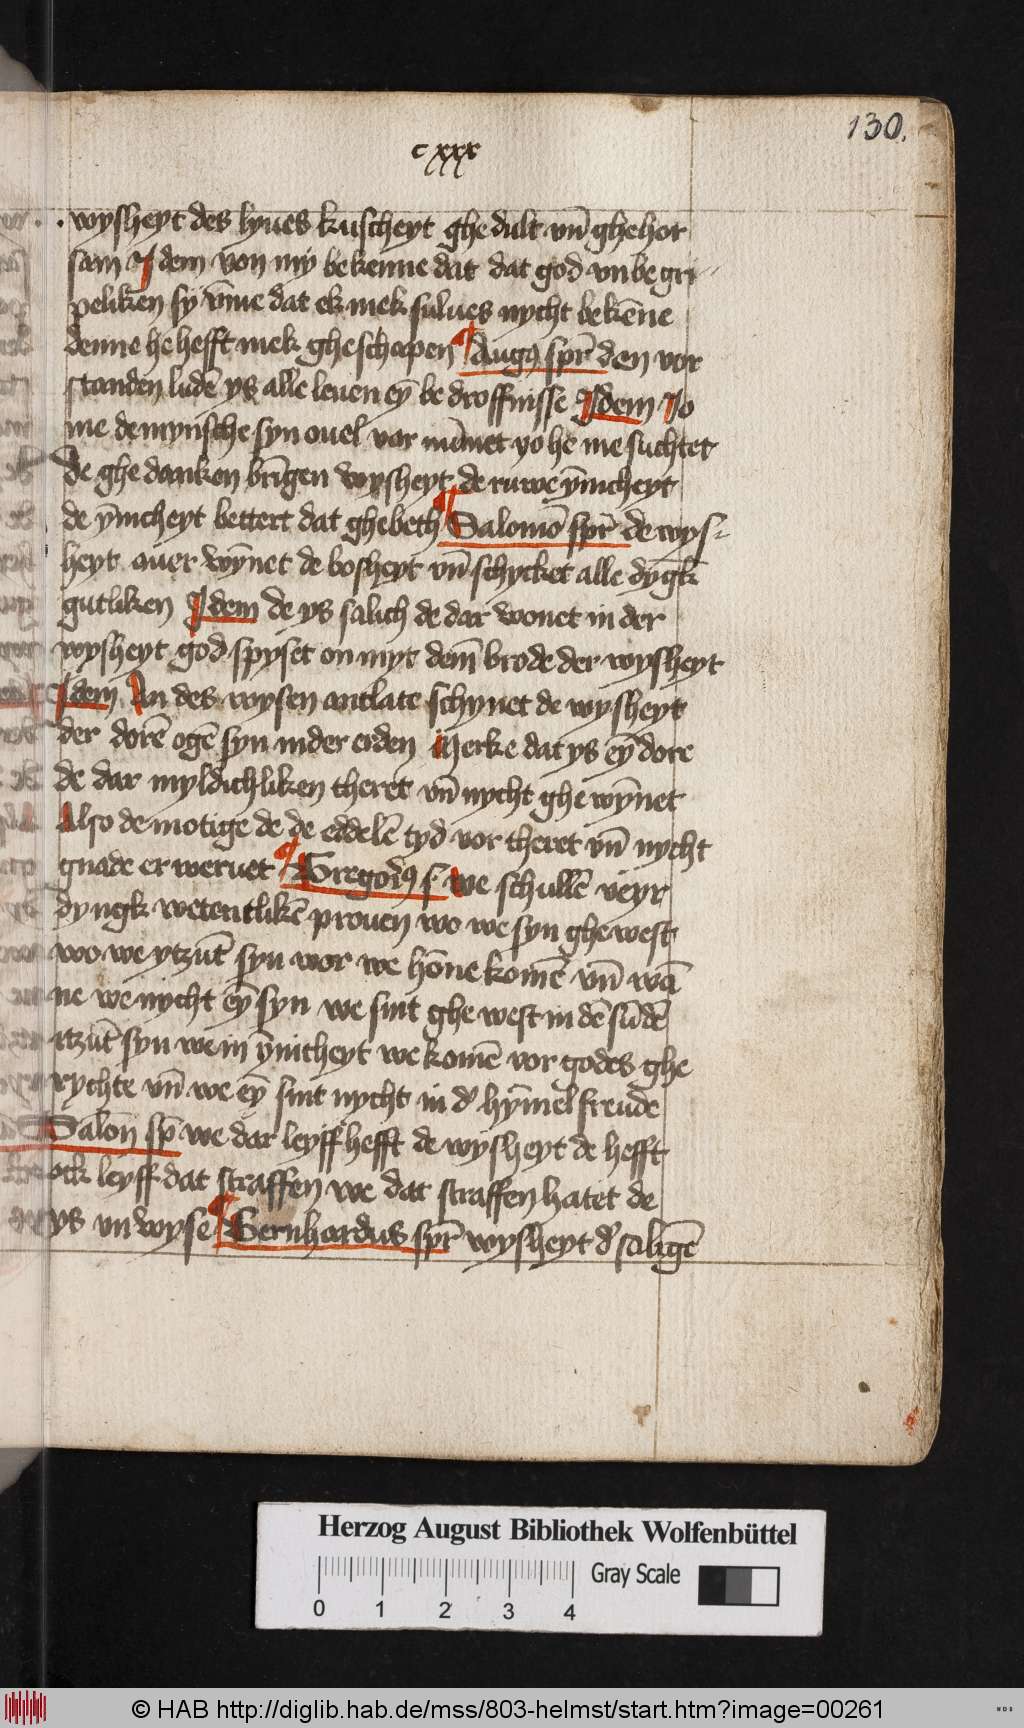 130.
cxxx
wysheyt des lyues kuscheyt ghe dult vn̄ ghehor
sam Idem von my̅ bekenne dat dat god vnbe gri
peliken sy v̄me dat ek mek sulues nycht bekēne
denne he hefft mek gheschapen Augꝰ spr̄ den vor
standen ludē ys alle leuen ey̅ be droffnisse Idem Jo
me de mynsche syn ouel vor nūmet yo he me suchtet
de ghe danken brīgen wysheyt de ruwe y̅nicheyt
de y̅nicheyt bettert dat ghebeth Salomō spr̄ de wys
heyt auer wy̅net de bosheyt vn̄ schycket alle dyngk
gutliken Idem de ys salich de dar wonet in der
wysheyt god spyset on myt dem̄ brode der wysheyt
Idem An des wysen antlate schynet de wysheyt
der dorē ogē syn in der erden Merke dat ys ey̅ dore
de dar myldichliken theret vn̄ nycht ghe wy̅net
Also de motige de de eddelē tyd vor theret vn̄ nycht
gnade er weruet Gregoriꝰ s we schullē veyr
dyngk wetentlikē prouen wo we syn ghe west
wo we ytzūt syn wor we hēne komē vn̄ wā
ne we nycht ey̅ syn we sint ghe west in dē sūdē
itzūt syn we in y̅nicheyt we komē vor godes ghe
rychte vn̄ we ey̅ sint nycht in d' hy̅mel freude
Salon̄ sp̄ we dar leyff hefft de wysheyt de hefft
ock leyff dat straffen we dat straffen hatet de
ys vn wyse Bernhardus spr̄ wysheyt d' saligē
Herzog August Bibliothek Wolfenbüttel
Gray Scale
0 1 2 3 4
© HAB http://diglib.hab.de/mss/803-helmst/start.htm?image=00261